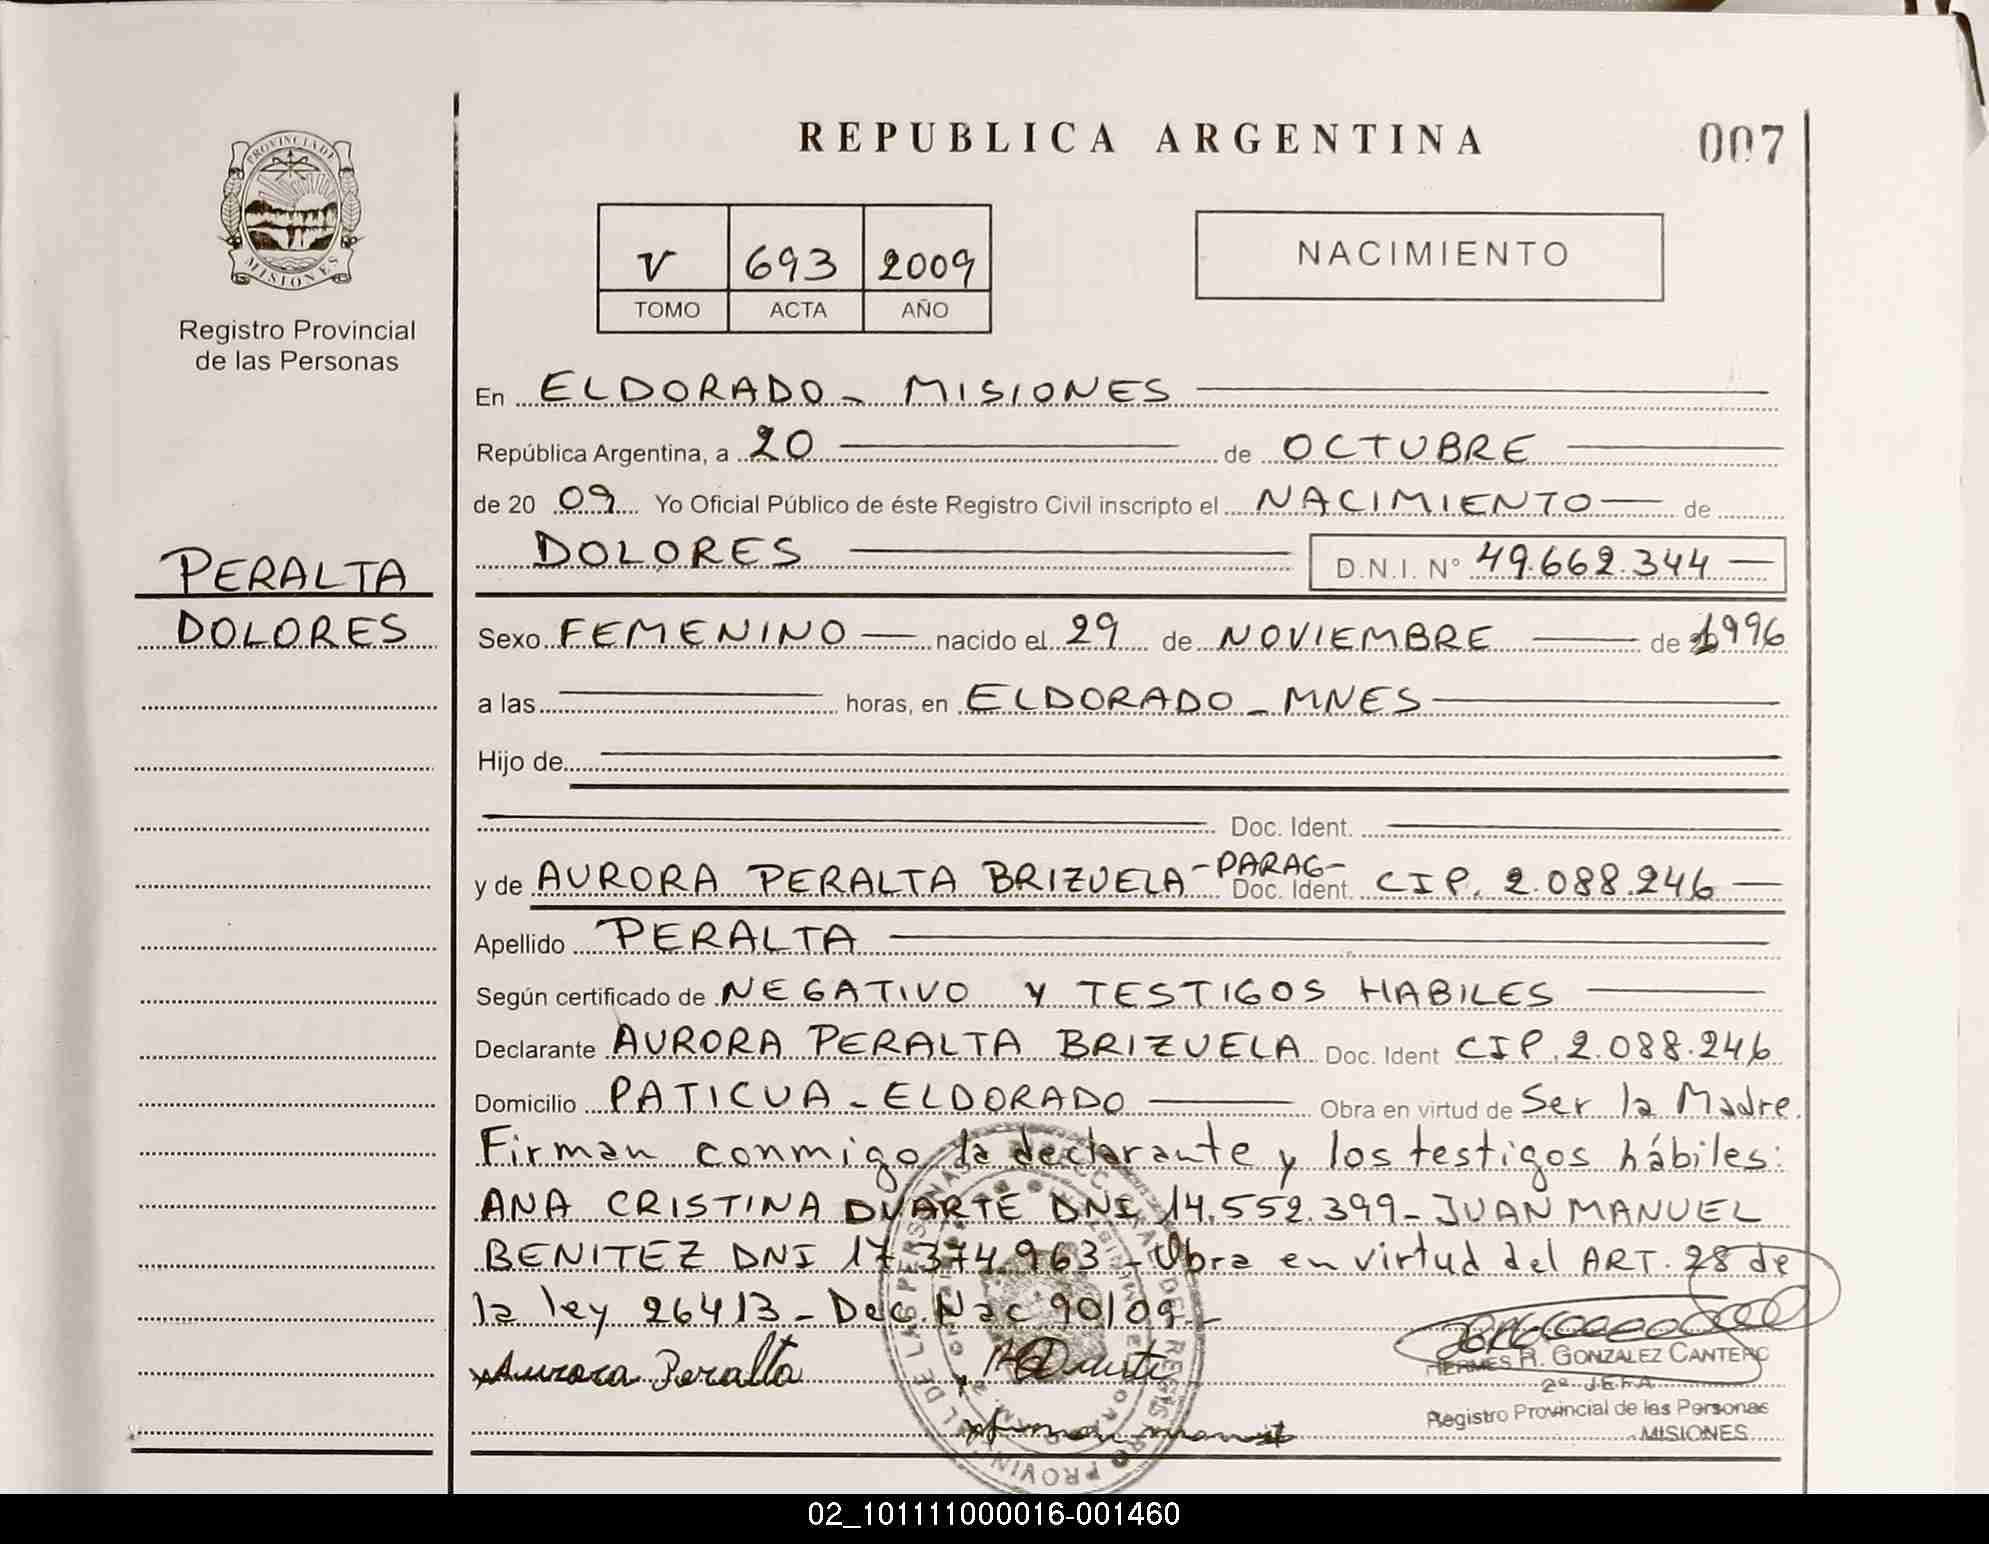 REPUBLICA ARGENTINA
007
PROVINCIA DE
MISIONES
Registro Provincial
de las Personas
V 693 2009
TOMO ACTA AÑO
NACIMIENTO
En ELDORADO - MISIONES
República Argentina, a 20 de OCTUBRE
de 20 09 Yo Oficial Público de éste Registro Civil inscripto el NACIMIENTO de
DOLORES D.N.I. N° 49.662.344
PERALTA
DOLORES
Sexo FEMENINO nacido el 29 de NOVIEMBRE de 1996
a las horas, en ELDORADO - MNES
Hijo de
Doc. Ident.
y de AURORA PERALTA BRIZUELA - PARAG - Doc. Ident. CIP. 2.088.246
Apellido PERALTA
Según certificado de NEGATIVO Y TESTIGOS HABILES
Declarante AURORA PERALTA BRIZUELA Doc. Ident CIP. 2.088.246
Domicilio PATICUA - ELDORADO Obra en virtud de Ser la Madre.
Firman conmigo la declarante y los testigos hábiles:
ANA CRISTINA DUARTE DNI 14.552.399 - JUAN MANUEL
BENITEZ DNI 17.374.963 - Obra en virtud del ART. 28 de
la ley 26413 - Dec. Nac 90/09 -
Aurora Peralta
HERMES R. GONZALEZ CANTERO
2º JEFA
Registro Provincial de las Personas
MISIONES
02_101111000016-001460